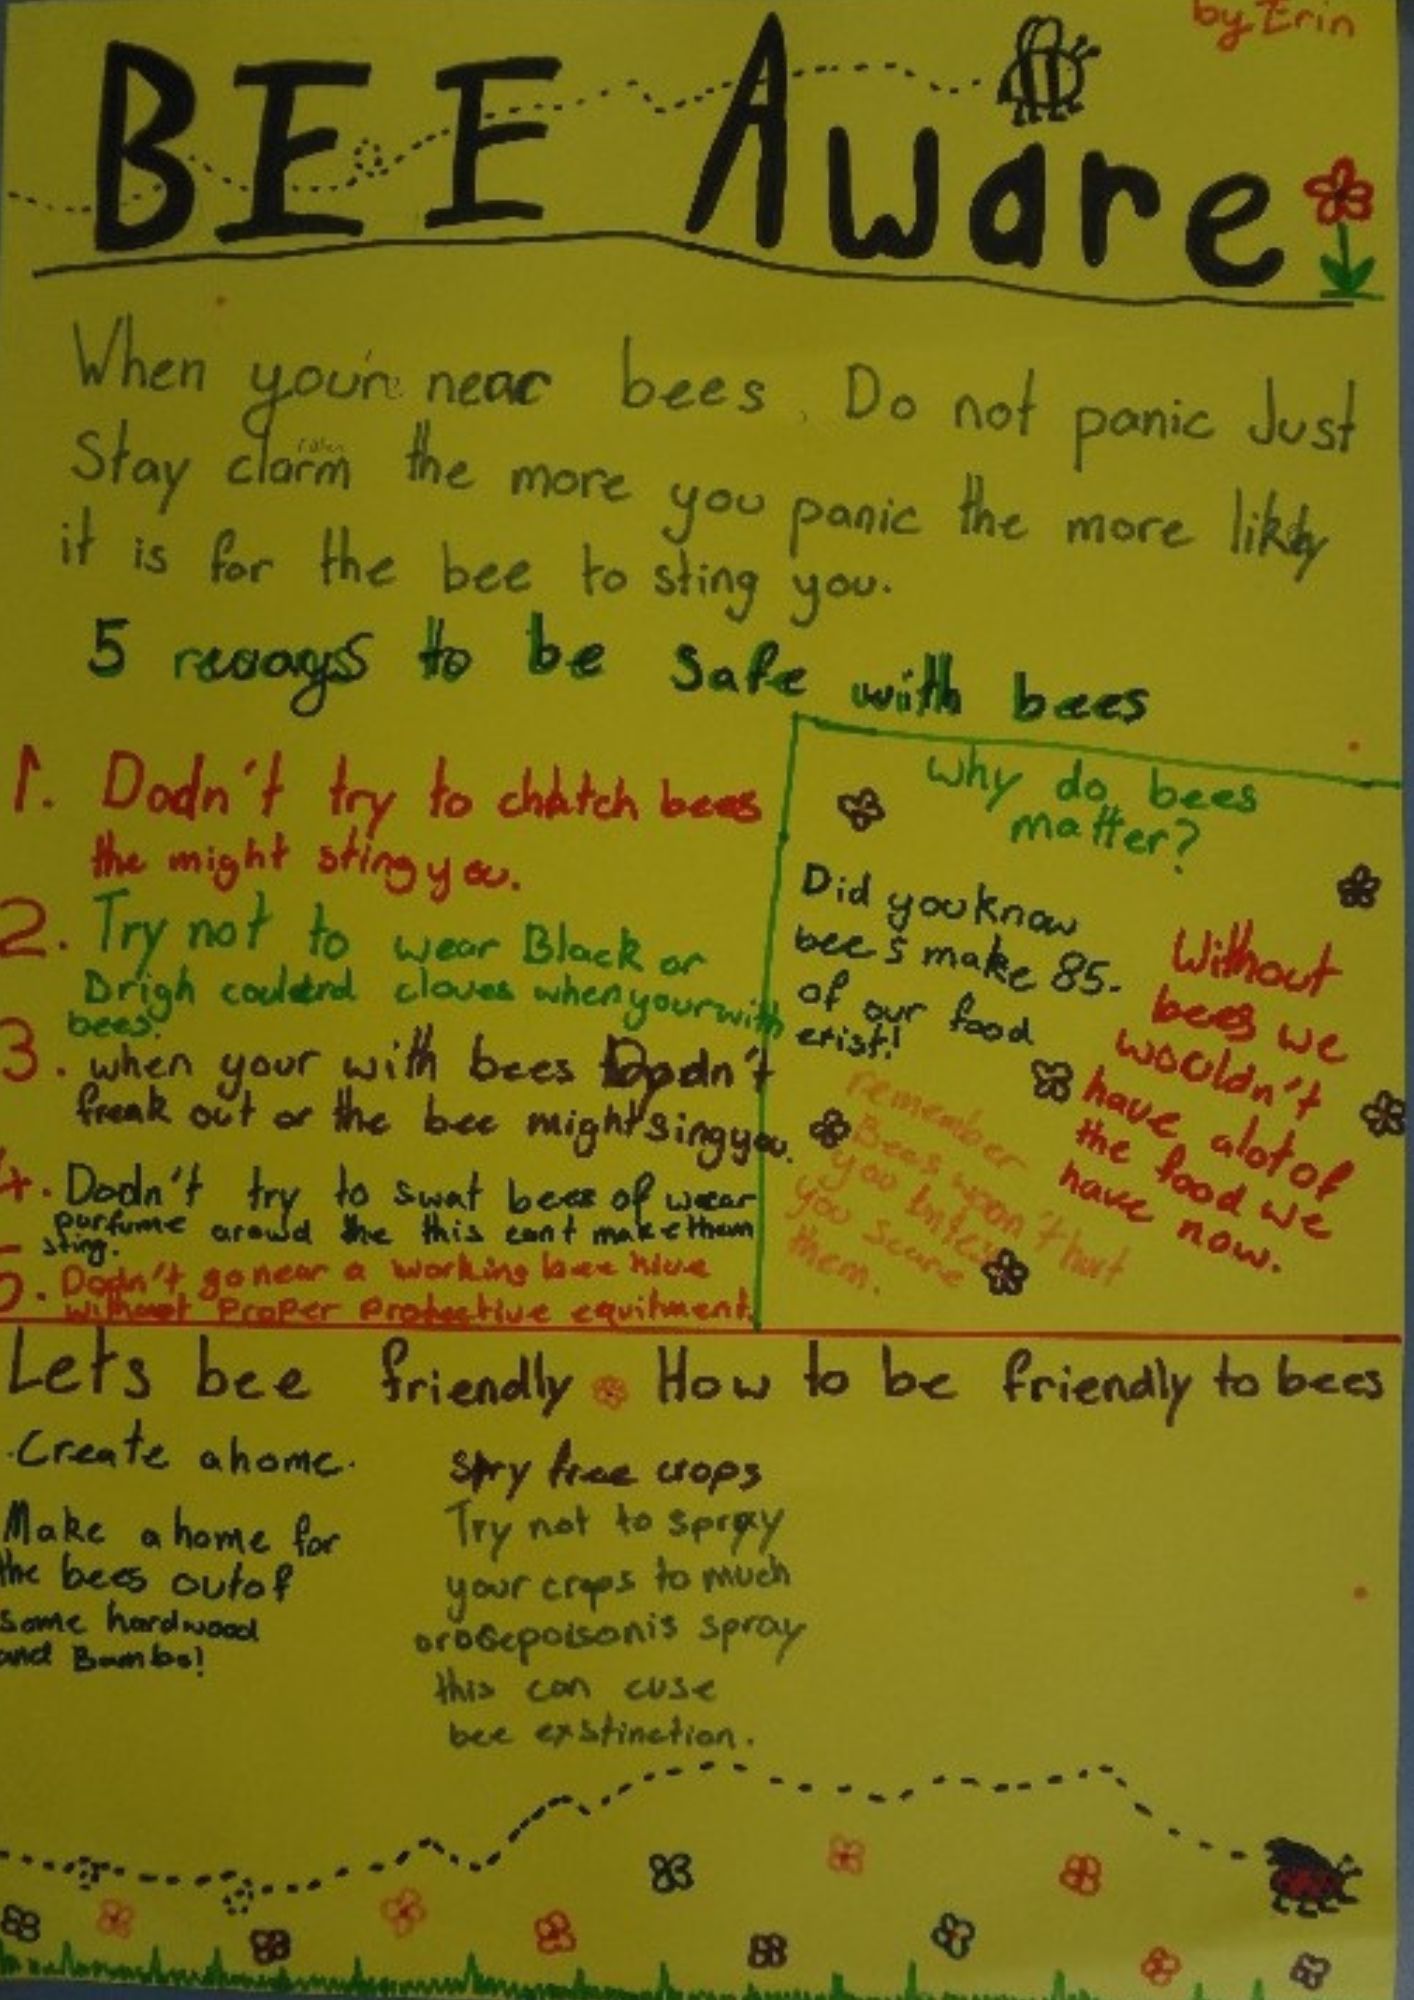 by Erin
BEE Aware
When you'r near bees. Do not panic Just
Stay clarm the more you panic the more likly
it is for the bee to sting you.
5 to be safe with bees
1. Dodn't try to chatch bees
the might sting you.
2. Try not to wear Black or
Drigh cloues when your with
bees.
3. when your with bees Dodn't
freak out or the bee might sing you.
4. Dodn't try to swat bees of wear
parfume arowd the this can't make them
sting.
5. Dodn't go near a working bee hive
without proper protective equitment.
why do bees
matter?
Did you know
bees make 85.
of our food
erist!
Without
bees we
wouldn't
have alot of
the food we
have now.
remember
Bees woon't hurt
you
you scare
them.
Lets bee friendly How to be friendly to bees
. Create a home.
Make a home for
the bees out of
some hardwood
and Bambo!
spry free crops
Try not to spray
your crops to much
spray
this can cuse
bee exstinction.